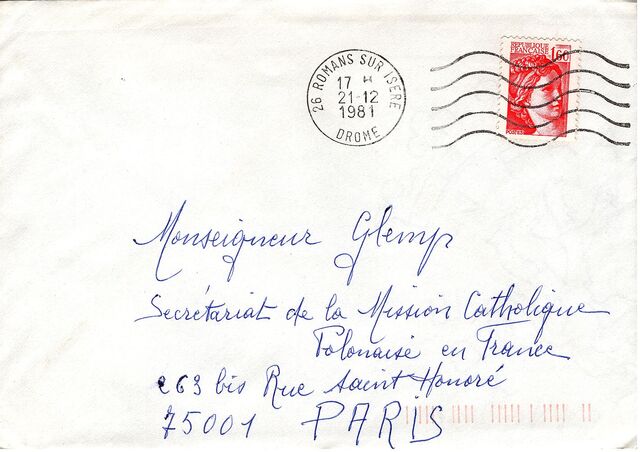 REPUBLIQUE FRANÇAISE
1,60
26 ROMANS SUR ISERE
17 H
21-12
1981
DROME
Monseigneur Glemp
Secrétariat de la Mission Catholique
Polonaise en France
263 bis Rue Saint Honoré
75001 PARIS